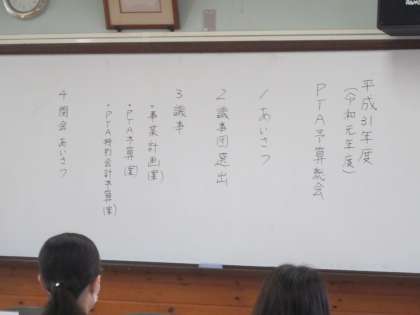 平成31年度
(令和元年度)
PTA予算総会
1 あいさつ
2 議事団選出
3 議事
・事業計画(案)
・PTA予算(案)
・PTA特別会計予算(案)
4 閉会あいさつ